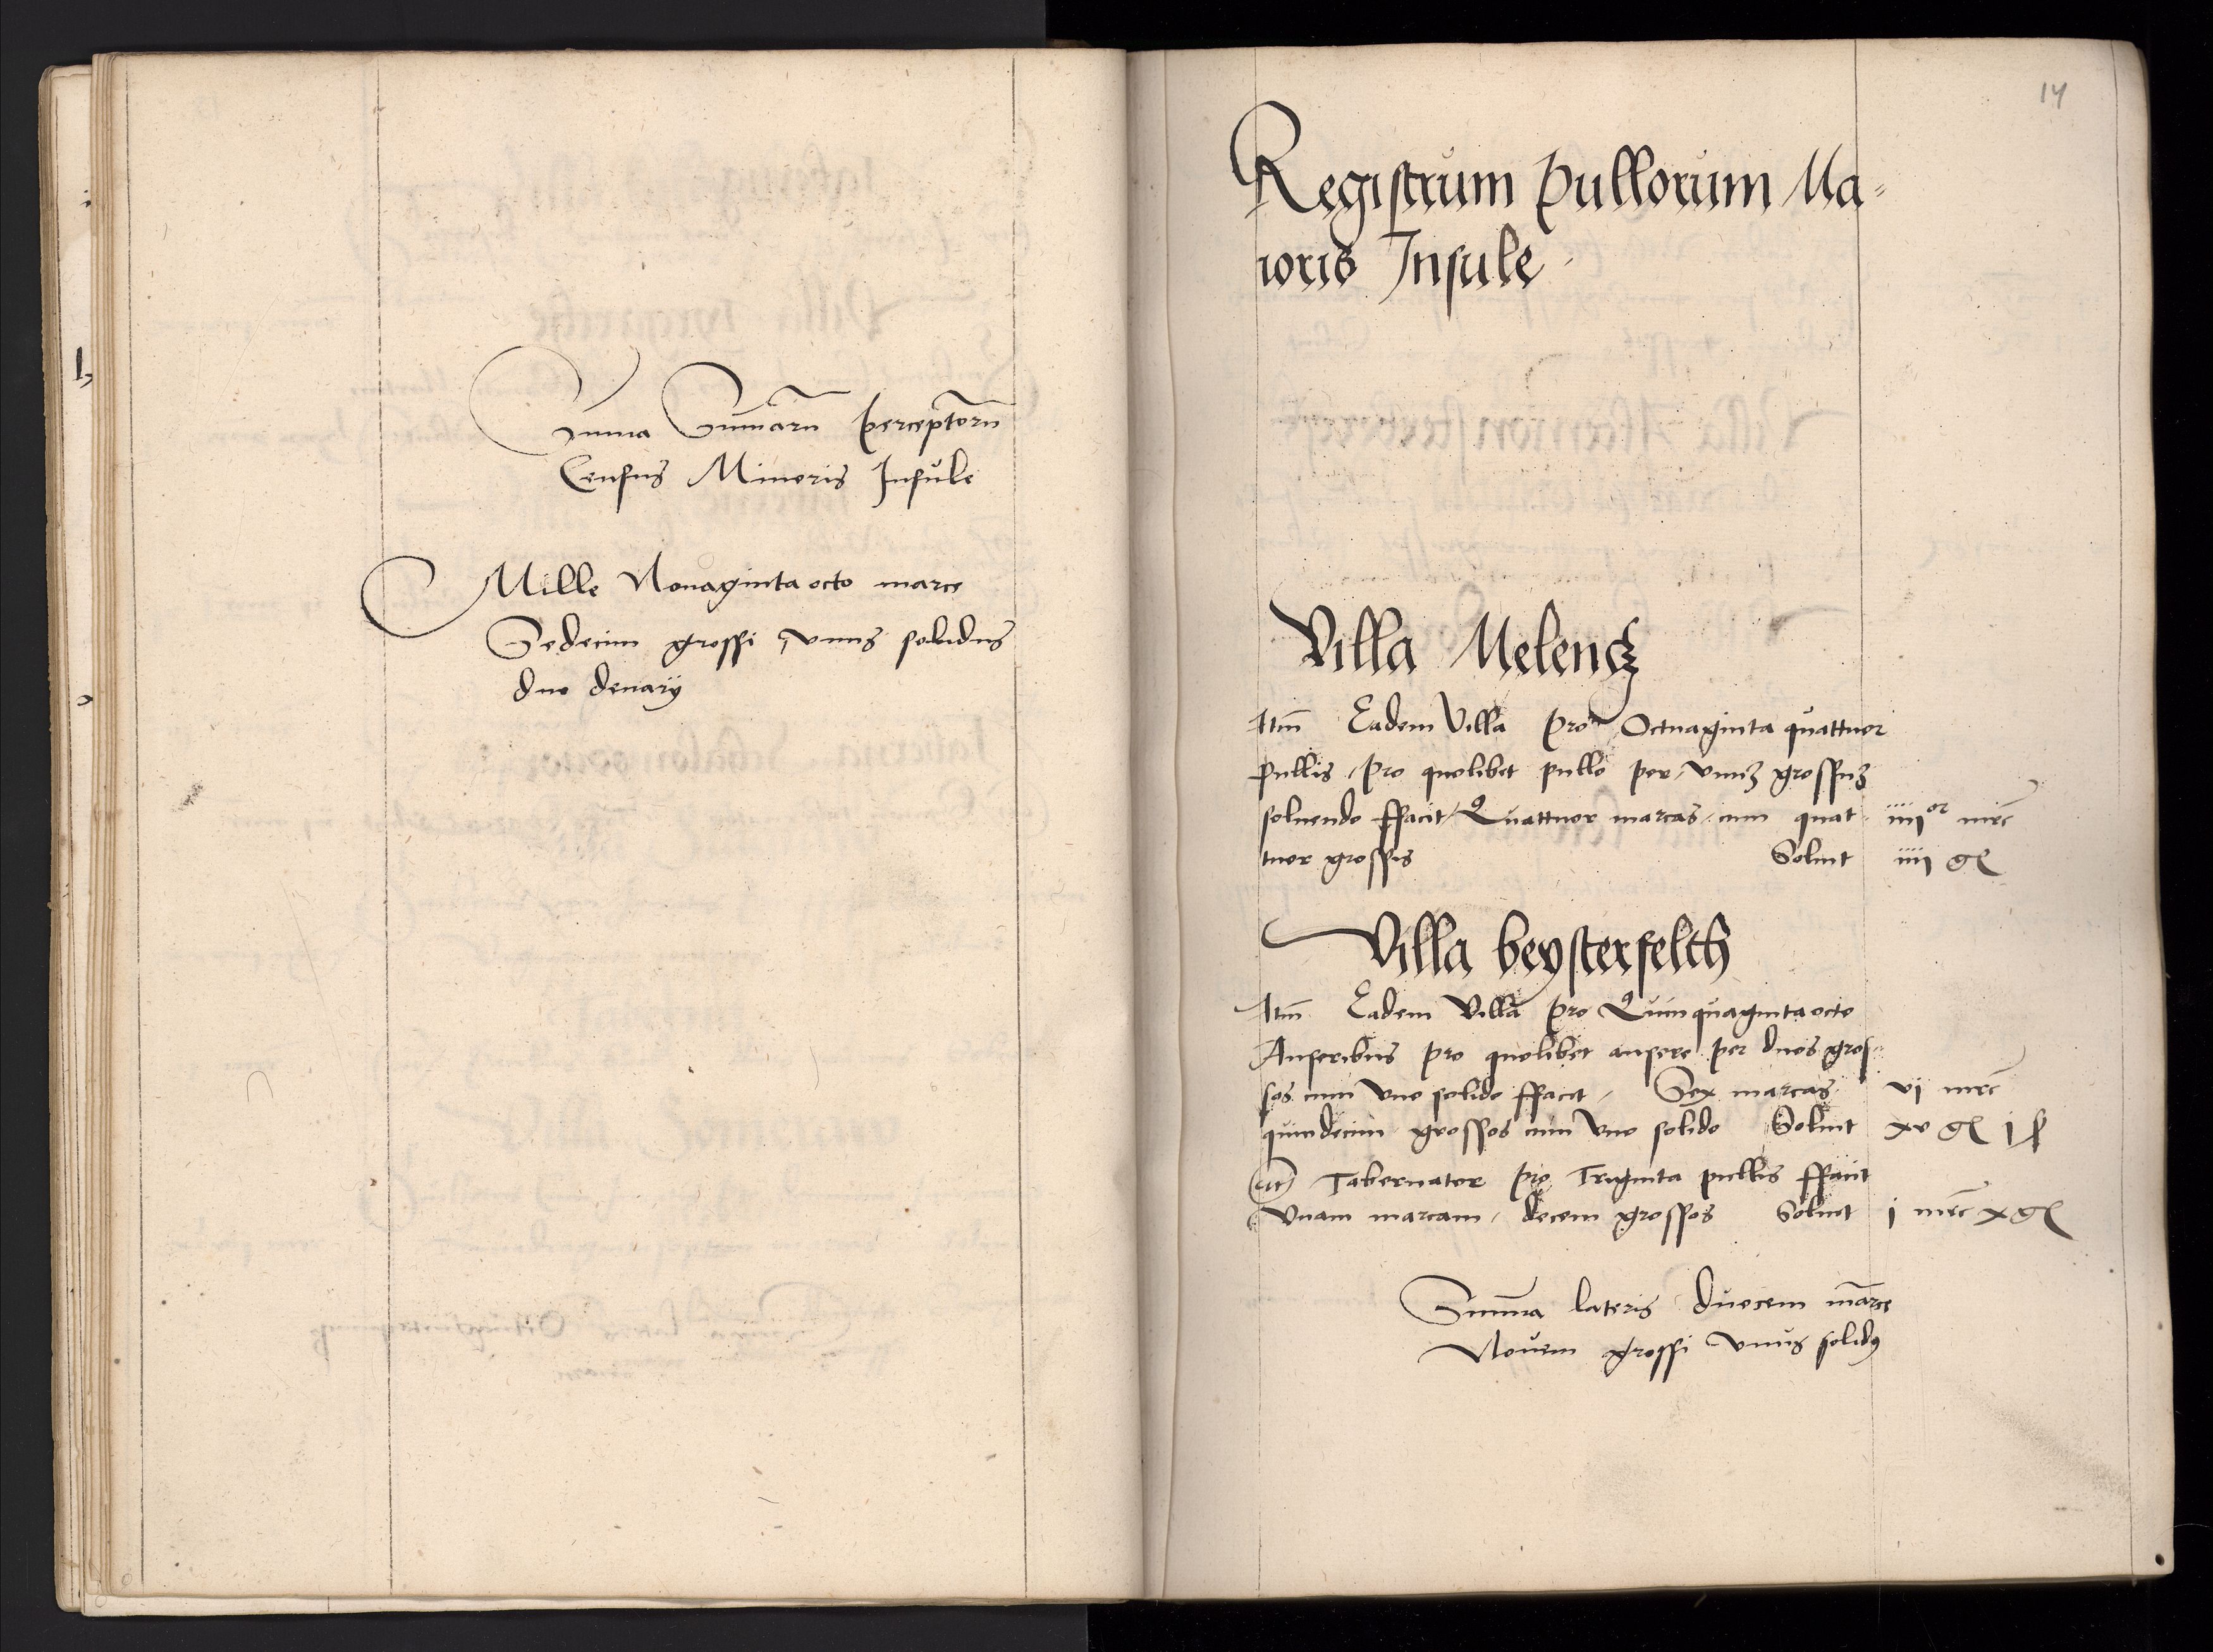 Sumā Sumarū perceptorū
Census Minoris Insule
Mille Nonaginta octo marce
Sedecim grossi vnus solidus
duo denarij
14
Registrum Pullorum Ma=
ioris Insule
Villa Melencz
Itm̄ Eadem Villa pro Octuaginta quattuor
pullis / pro quolibet pullo per / vnuꝫ grossuꝫ
soluendo ffacit / Quattuor marcas / cum quat
iiiiᵒʳ mrc̄
tuor grossis Soluit
iiii gl
Villa beysterfelth
Itm̄ Eadem Villa pro Quinquaginta octo
Anseribus pro quolibet ansere per duos gros=
sos cum vno solido ffacit / Sex marcas
vi mrc̄
quindecim grossos cum vno solido Soluit
xv gl i ß
Itē Tabernator pro Triginta pullis ffacit
vnam marcam / decem grossos Soluit
i mrc̄ x gl
Summa lateris duecem marce
Nouem grossi vnus solidꝰ